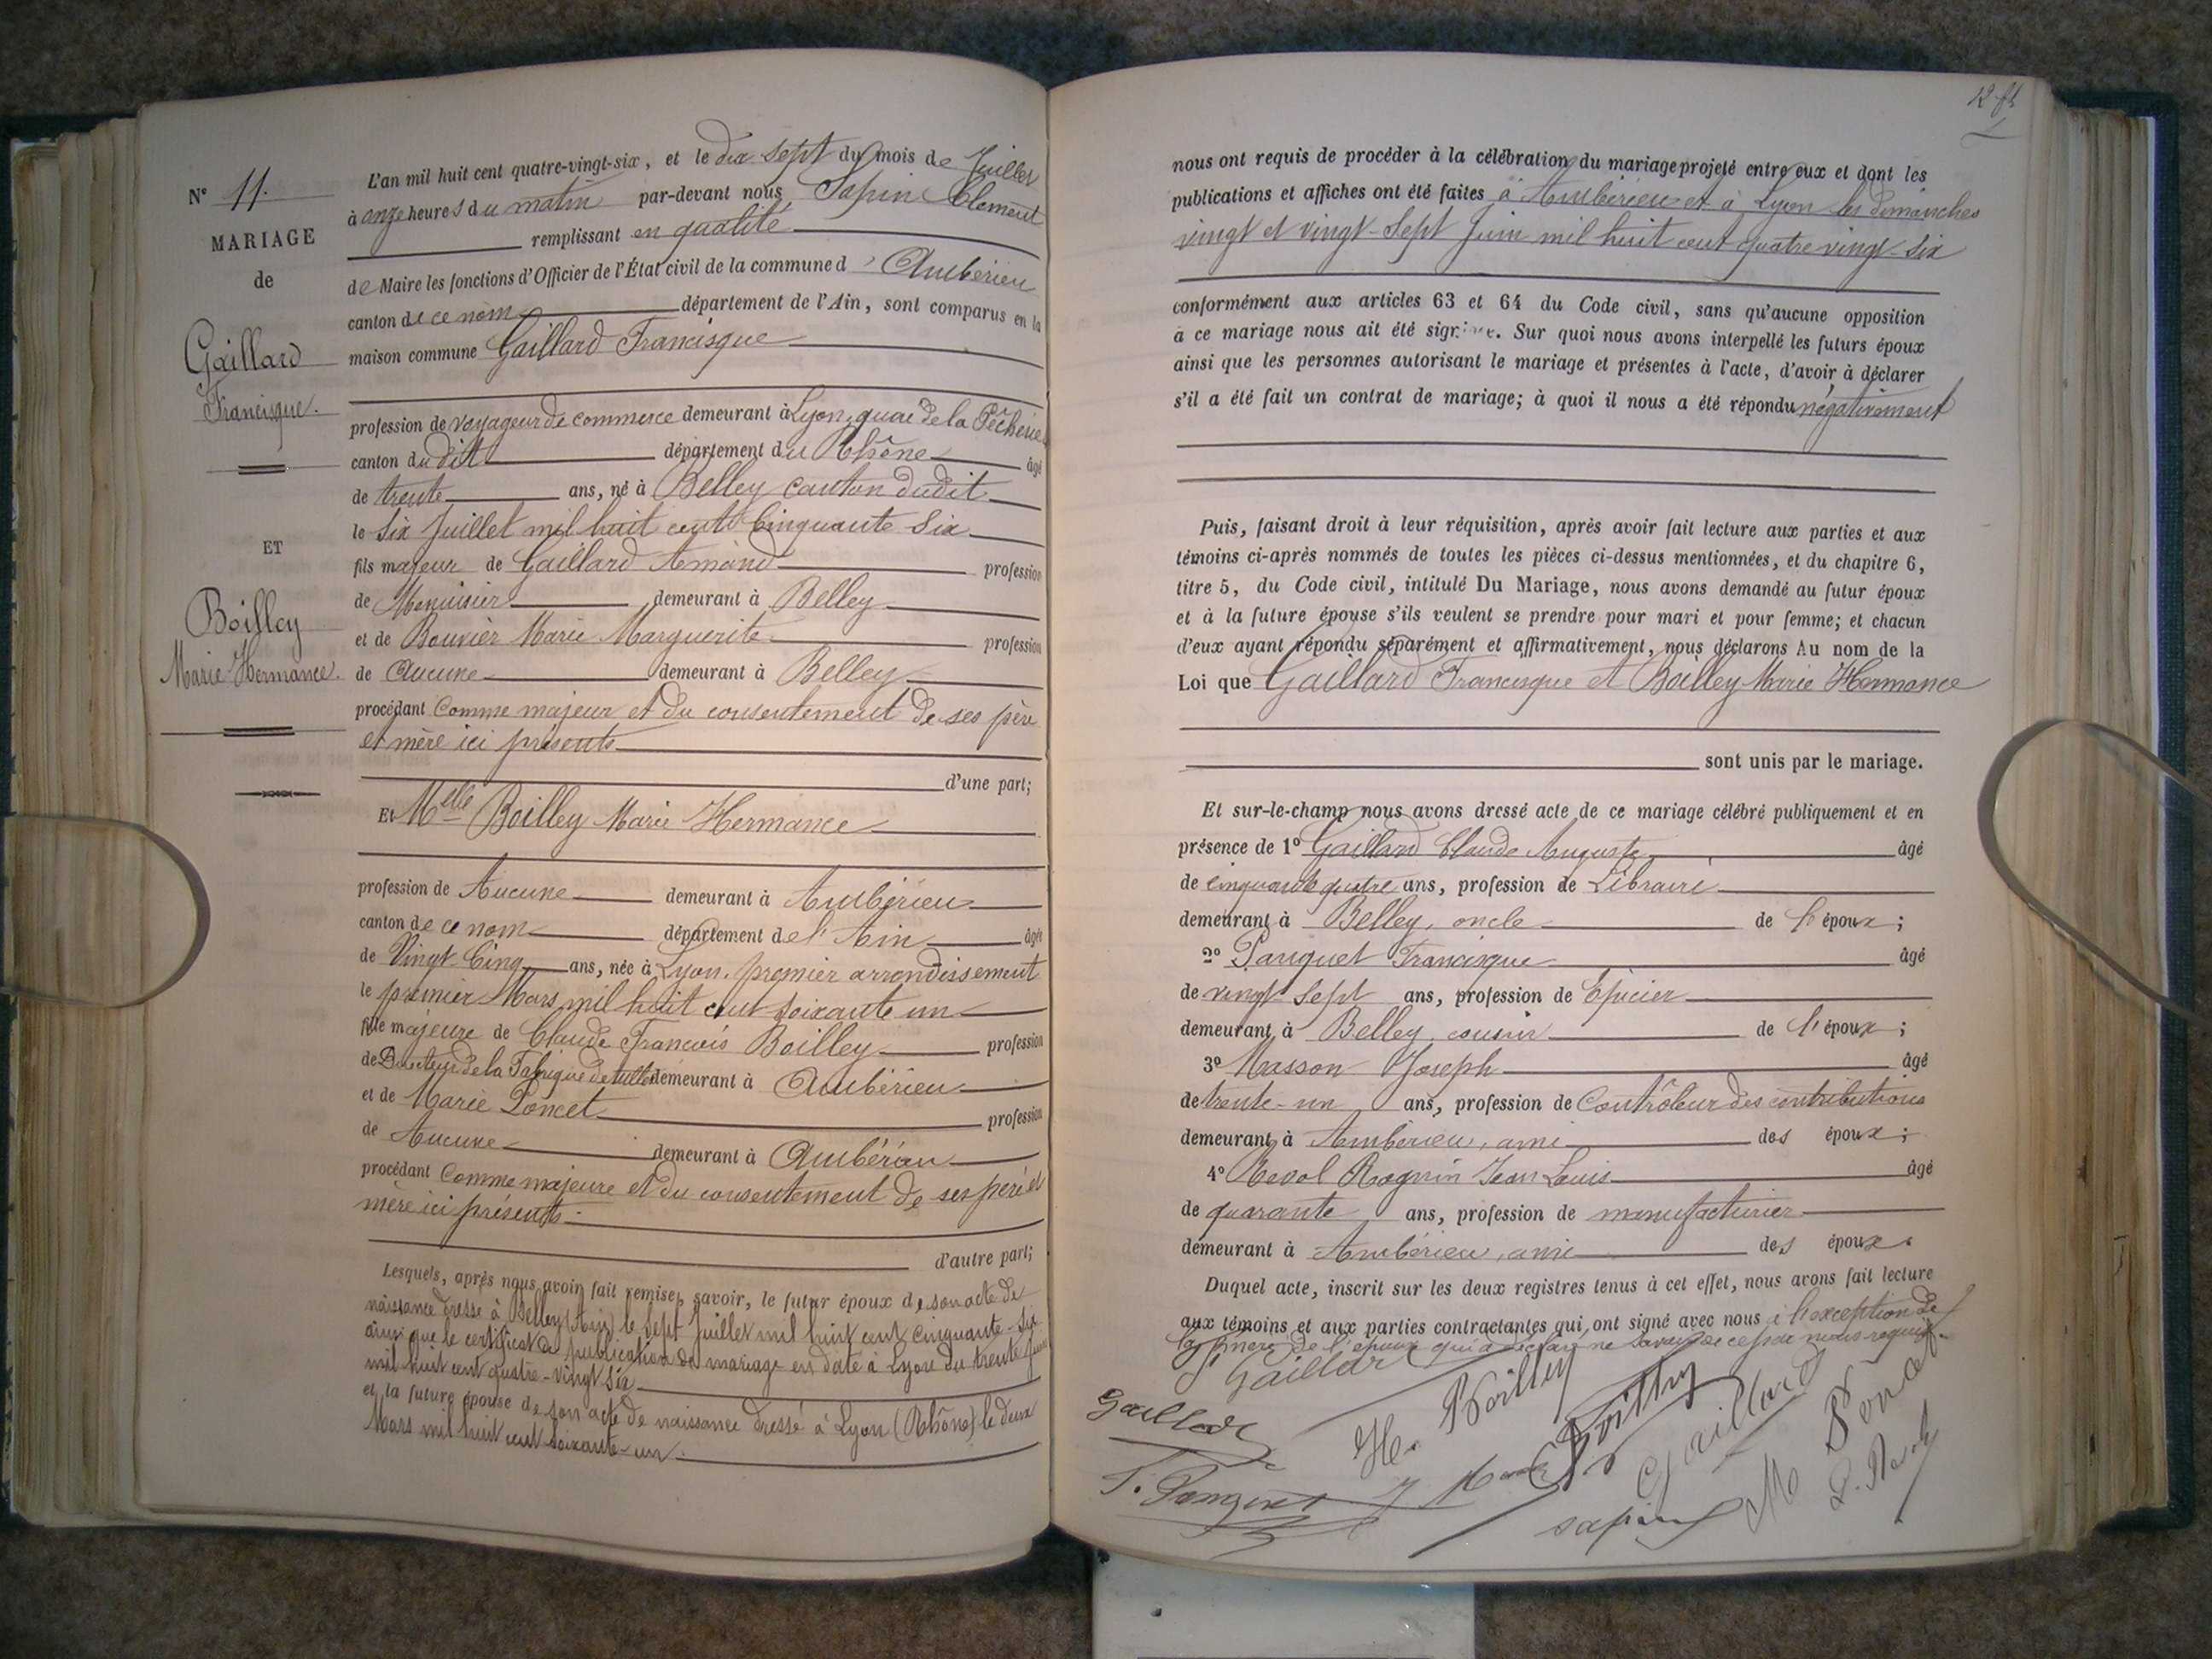 N° 11.
MARIAGE
de
Gaillard
Francisque.
ET
Boilley
Marie Hermance.
L'an mil huit cent quatre-vingt-six, et le dix sept du mois de Juillet
à onze heures du matin par-devant nous Sapin Clément
remplissant en qualité
de Maire les fonctions d'Officier de l'État civil de la commune d'Ambérieu
canton de ce nom département de l'Ain, sont comparus en la
maison commune Gaillard Francisque
profession de voyageur de commerce demeurant à Lyon, quai de la Pêcherie
canton dudit département du Rhône âgé
de trente ans, né à Belley canton dudit
le six Juillet mil huit cent Cinquante Six
fils majeur de Gaillard Amand profession
de Menuisier demeurant à Belley
et de Bouvier Marie Marguerite profession
de Aucune demeurant à Belley
procédant Comme majeur et du consentement de ses père
et mère ici présents
d'une part;
Et Melle Boilley Marie Hermance
profession de Aucune demeurant à Ambérieu
canton de ce nom département de l'Ain âgée
de Vingt Cinq ans, née à Lyon, premier arrondissement
le premier Mars mil huit cent soixante un
fille majeure de Claude François Boilley profession
de Directeur de la Fabrique de tulles demeurant à Ambérieu
et de Marie Poncet profession
de Aucune demeurant à Ambérieu
procédant Comme majeure et du consentement de ses père et
mère ici présents
d'autre part;
Lesquels, après nous avoir fait remise, savoir, le futur époux de son acte de
naissance dressé à Belley (Ain) le Sept Juillet mil huit cent cinquante-six
ainsi que le certificat de publication de mariage en date à Lyon du trente juin
mil huit cent quatre-vingt six
et la future épouse de son acte de naissance dressé à Lyon (Rhône) le deux
Mars mil huit cent soixante-un.
nous ont requis de procéder à la célébration du mariage projeté entre eux et dont les
publications et affiches ont été faites à Ambérieu et à Lyon les dimanches
vingt et vingt-Sept Juin mil huit cent quatre vingt-six
conformément aux articles 63 et 64 du Code civil, sans qu'aucune opposition
à ce mariage nous ait été signifiée. Sur quoi nous avons interpellé les futurs époux
ainsi que les personnes autorisant le mariage et présentes à l'acte, d'avoir à déclarer
s'il a été fait un contrat de mariage; à quoi il nous a été répondu négativement
Puis, faisant droit à leur réquisition, après avoir fait lecture aux parties et aux
témoins ci-après nommés de toutes les pièces ci-dessus mentionnées, et du chapitre 6,
titre 5, du Code civil, intitulé Du Mariage, nous avons demandé au futur époux
et à la future épouse s'ils veulent se prendre pour mari et pour femme; et chacun
d'eux ayant répondu séparément et affirmativement, nous déclarons Au nom de la
Loi que Gaillard Francisque et Boilley Marie Hermance
sont unis par le mariage.
Et sur-le-champ nous avons dressé acte de ce mariage célébré publiquement et en
présence de 1° Gaillard Claude Auguste âgé
de cinquante quatre ans, profession de Libraire
demeurant à Belley, oncle de l'époux;
2° Panquet Francisque âgé
de vingt sept ans, profession de Epicier
demeurant à Belley, cousin de l'époux;
3° Masson Joseph âgé
de trente-un ans, profession de Contrôleur des contributions
demeurant à Ambérieu, ami des époux;
4° Revol Rognin Jean Louis âgé
de quarante ans, profession de manufacturier
demeurant à Ambérieu, ami des époux.
Duquel acte, inscrit sur les deux registres tenus à cet effet, nous avons fait lecture
aux témoins et aux parties contractantes qui ont signé avec nous à l'exception de
la mère de l'époux qui a déclaré ne savoir de ce par nous requis.
Gaillard
Gaillard
He. Boilley
Boilley
Gaillard
M Poncet
sapin